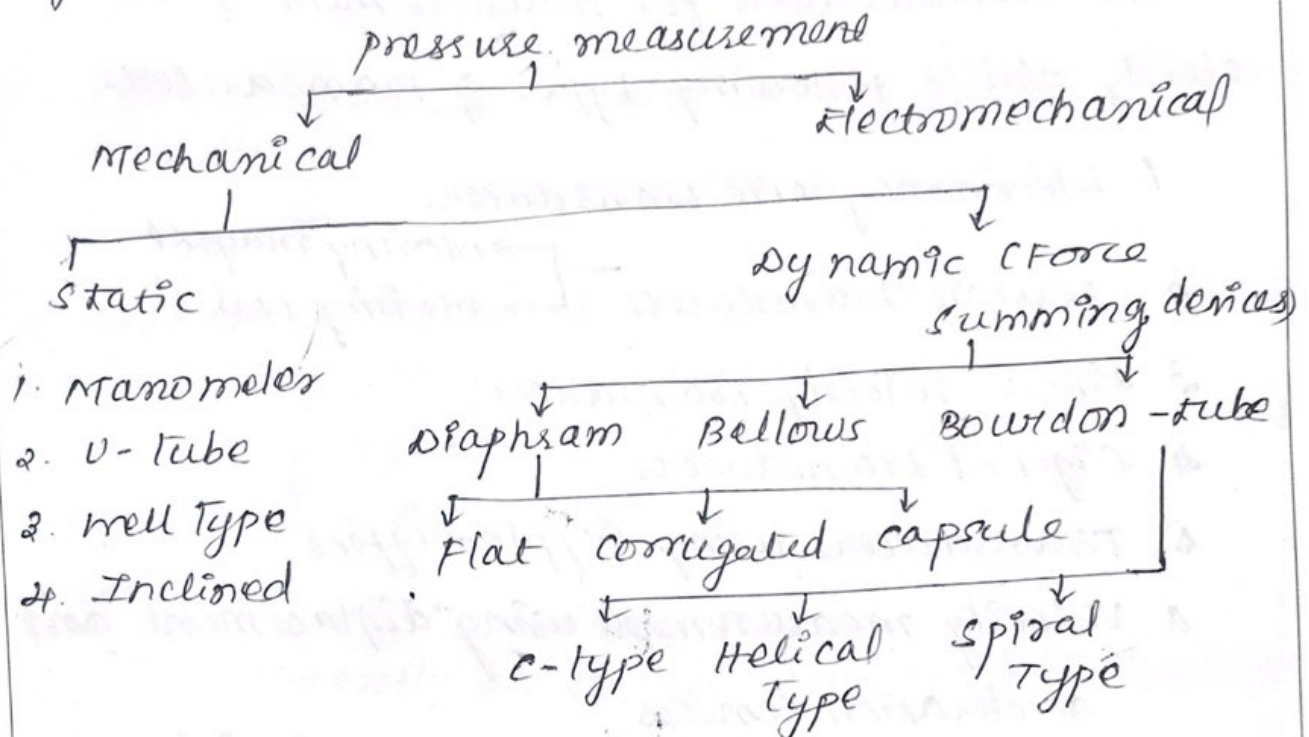 pressure measurement
Mechanical
Electromechanical
Static
Dynamic (Force
summing devices)
1. Manometer
2. U-Tube
3. Well Type
4. Inclined
Diaphram
Bellows
Bourdon-tube
Flat
Corrugated
Capsule
C-type
Helical
Type
Spiral
Type